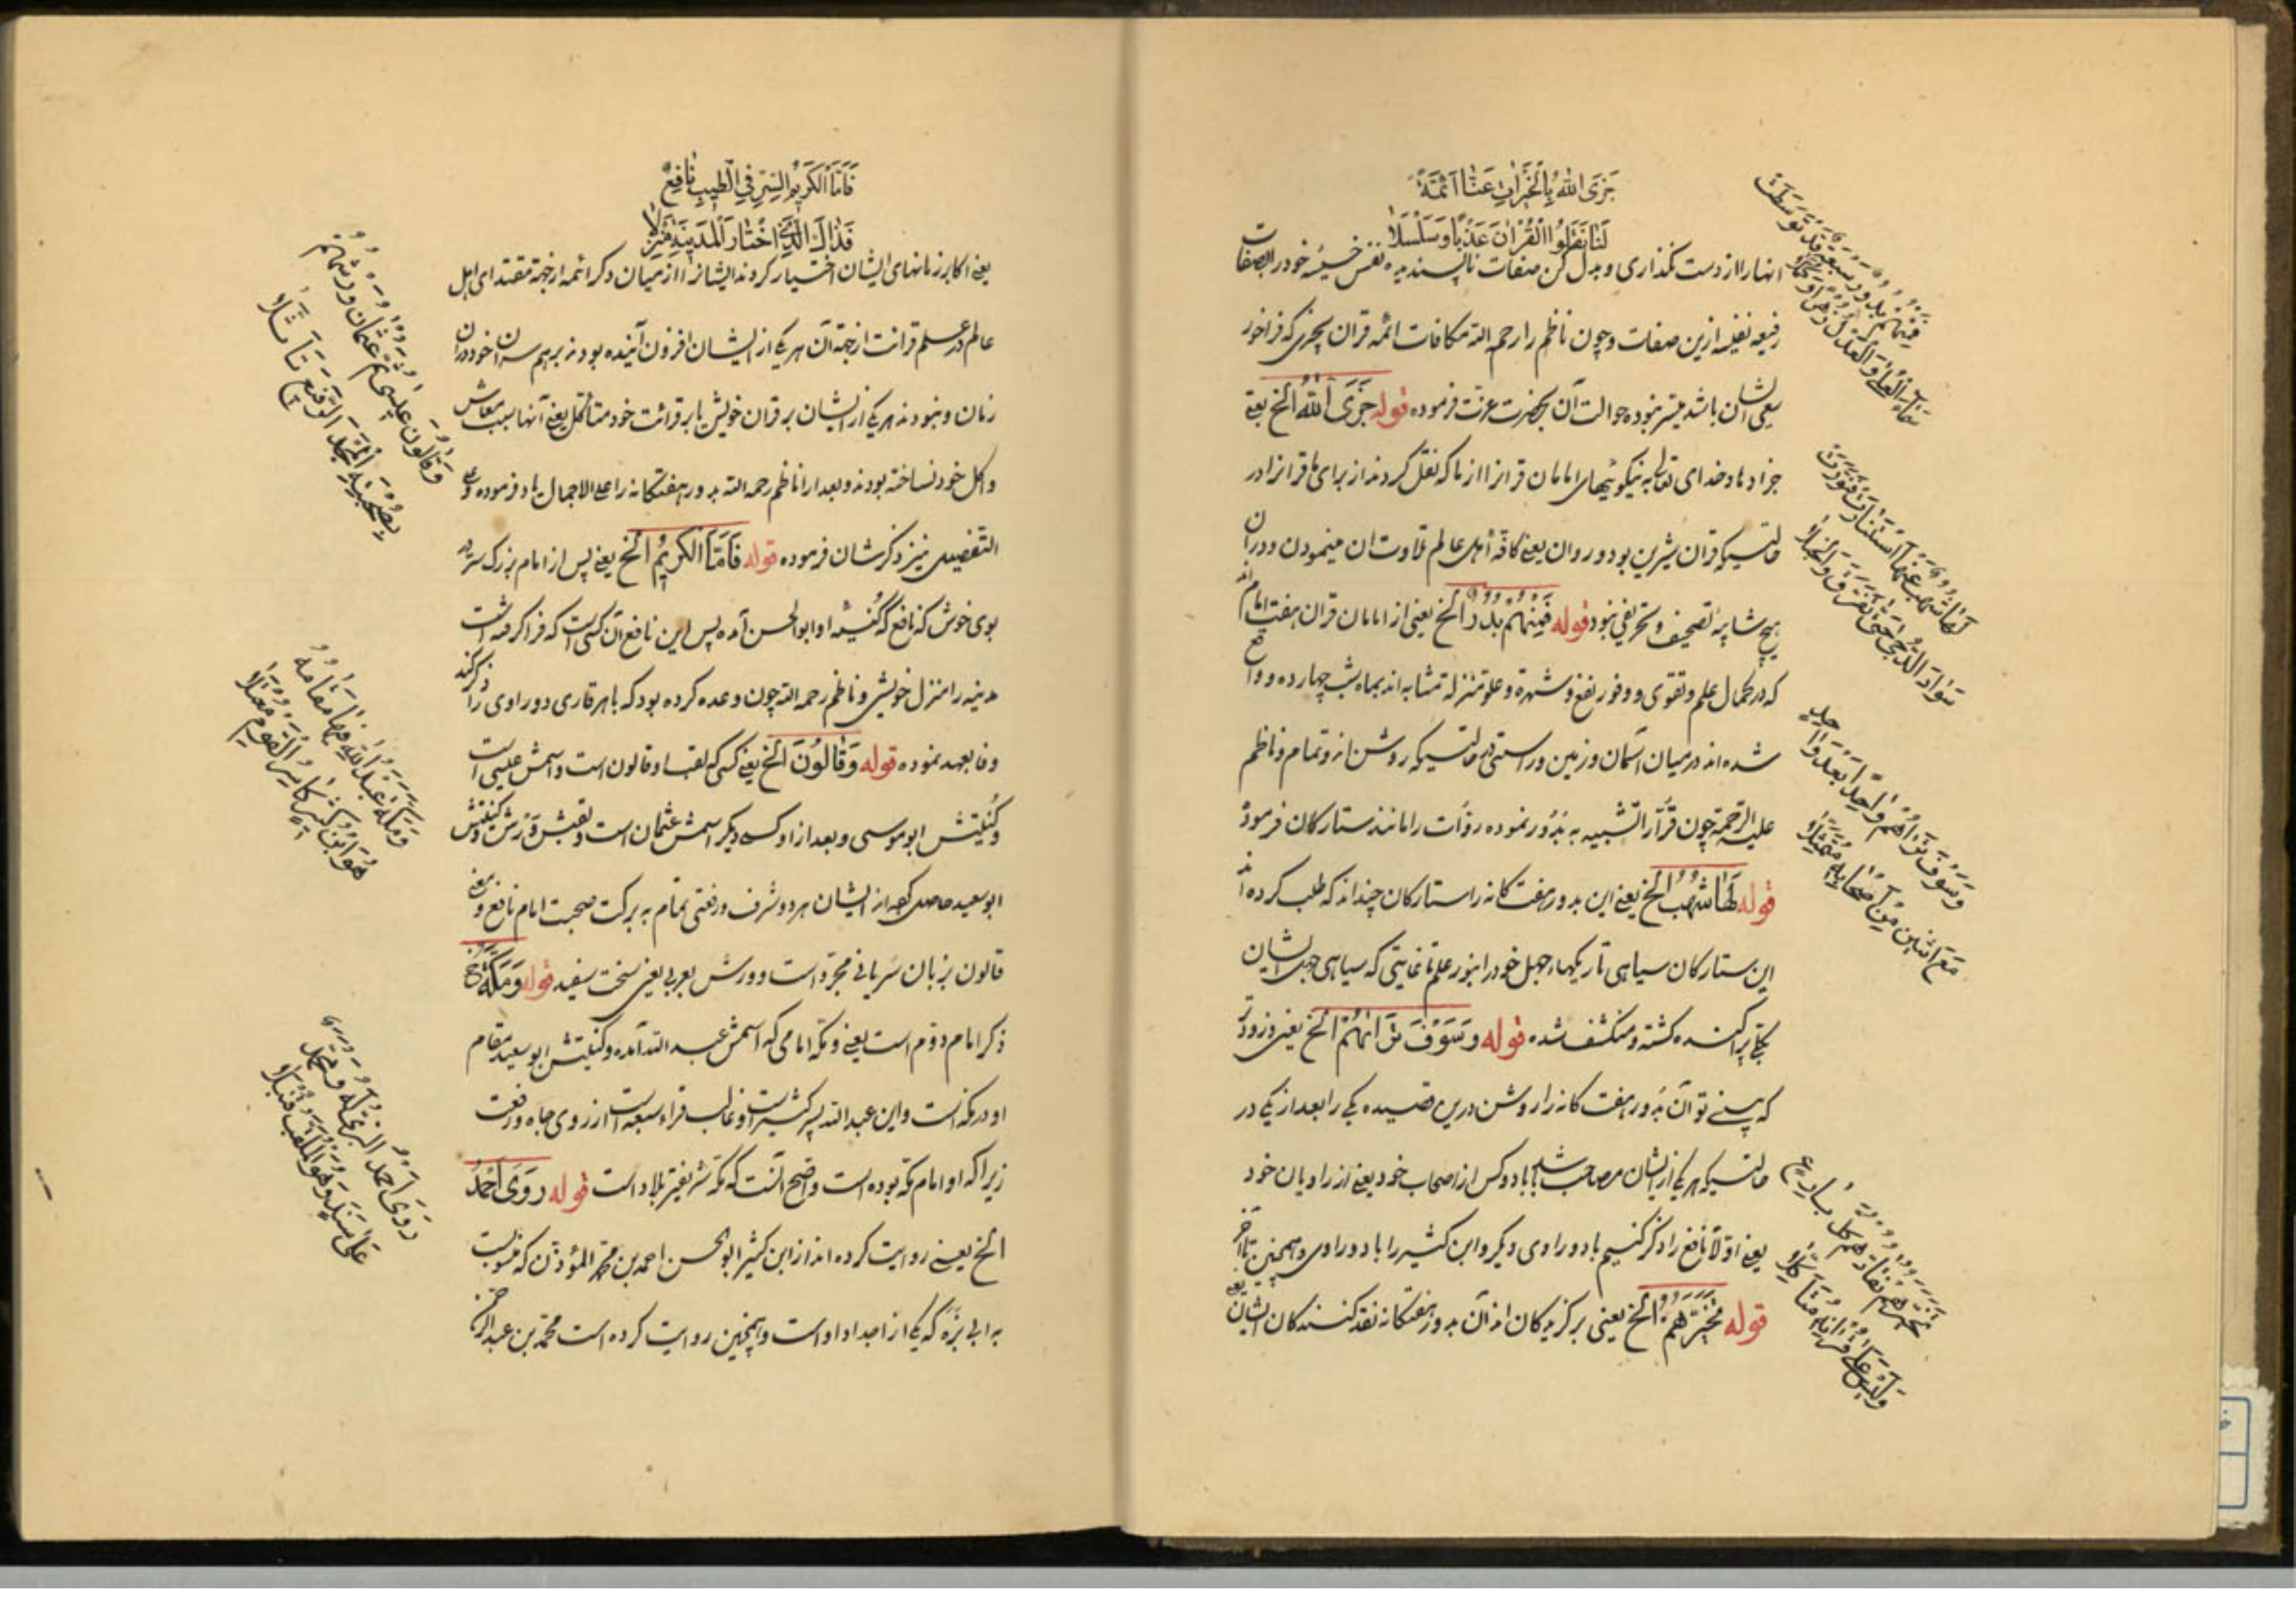 جَزَى اللهُ بِالْخَيْرَاتِ عَنَّا اَئِمَّةً
لَنَا نَقَلُوا الْقُرْاٰنَ عَذْبًا وَسَلْسَلَا
انها را از دست نگذاری و بدل کن صفات ناپسندیده نفس خسیسه خود را بصفات
رفیعه نفیسه ازین صفات و چون ناظم را رحمه الله مکافات ائمه قرآن بچیزی که فراخور
سعی ایشان باشد میسر نبوده حوالت آن بحضرت عزت فرموده قوله جَزَى اللهُ الخ یعنی
جزا دهاد خدای تعالی به نیکوئیهای امامان قرا را از ما که نقل کردند از برای ما قرآن را در
حالتیکه قرآن شیرین بود و روان یعنی کافه اهل عالم تلاوت آن مینمودن و در آن
هیچ شایبه تصحیف و تحریفی نبود قوله فَمِنْهُمْ بُدُورٌ الخ یعنی از امامان قرآن هفت امام اند
که در کمال علم و تقوی و وفور نفع و شهرة و علو منزله تمشابه اند بماه شب چهارده و واقع
شده اند در میان آسمان و زمین و راستی حالتیکه روشن اند و تمام و ناظم
علیه الرحمة چون قُرّا را تشبیه به بُدُور نموده روات را مانند ستارکان فرموده
قوله لَهَا شُهُبٌ الخ یعنی این بدور هفت کانه را ستارکان چنداند که طلب کرده اند
این ستارکان سیاهی تاریکیهاء جهل خود را بنور علم تا غایتی که سیاهی جهل ایشان
بکلی پراکنده کشته و منکشف شده قوله وَسَوْفَ تَرَاهُمْ الخ یعنی و زود بود
که ببینی تو آن بدور هفت کانه را روشن درین قصیده یکی را بعد از یکی در
حالتیکه هر یکی از ایشان مصاحب باشد با دو کس از اصحاب خود یعنی از راویان خود
یعنی اولا نافع را ذکر کنیم با دو راوی و دیکر و ابن کثیر را با دو راوی و همچنین تا آخر
قوله تَخَيَّرَهُمْ الخ یعنی برکزیدکان اند آن بدور هفتکانه نقدکنندکان ایشان یعنی
فَمِنْهُمْ بُدُورٌ سَبْعَةٌ قَدْ تَوَسَّطَتْ
سَمَاءَ الْعُلَى وَالْعَدْلِ زُهْرًا وَكُمَّلَا
لَهَا شُهُبٌ عَنْهَا اسْتَنَارَتْ فَنَوَّرَتْ
سَوَادَ الدُّجَى حَتَّى تَفَرَّقَ وَانْجَلَا
وَسَوْفَ تَرَاهُمْ وَاحِدًا بَعْدَ وَاحِدٍ
مَعَ اثْنَيْنِ مِنْ اَصْحَابِهِ مُتَمَثِّلَا
تَخَيَّرَهُمْ نُقَّادُهُمْ كُلَّ بَارِعٍ
وَلَيْسَ عَلَى قُرْاٰنِهِ مُتَأَكِّلَا
فَاَمَّا الْكَرِيْمُ السِّرِّ فِي الطِّيْبِ نَافِعٌ
فَذَاكَ الَّذِي اخْتَارَ الْمَدِيْنَةَ مَنْزِلَا
یعنی اکابر زمانهای ایشان اختیار کردند ایشانرا از میان دکر ائمه از جهة مقتدای اهل
عالم در علم قرائت از جهة آن هر یکی از ایشان افزون آینده بودند بر همسران خود در آن
زمان و نبودند هر یکی از ایشان بر قرآن خویش یا بر قرائت خود متأکل یعنی آنها سبب معاش
و اکل خود نساخته بودند و بعد از آن ناظم رحمه الله بدور هفتکانه را علی الاجمال یاد فرموده و علی
التفصیل نیز ذکر شان فرموده قوله فَاَمَّا الْكَرِيْمُ الخ یعنی پس از امام بزرک سر در
بوی خوش که نافع که کُنیته او ابو الحسن آمده پس این نافع آن کسی است که فرا کرفته است
مدینه را منزل خویش و ناظم رحمه الله چون وعده کرده بود که با هر قاری دو راوی را ذکر کند
وفا بعهد نموده قوله وَقَالُونَ الخ یعنی کسی که لقب او قالون است و اسمش عیسی است
و کُنیتش ابو موسی و بعد از او کسی دیکر اسمش عثمان است و لقبش وَرش و کنیتش
ابو سعید حاصل کرده از ایشان هر دو شرف و رفعتی تمام به برکت صحبت امام نافع و معنی
قالون بزبان سریانی مجرّد است و ورش بعربی یعنی سخت سفید قوله وَمَكَّةُ الخ
ذکر امام دوم است یعنی و مکه امامی که اسمش عبد الله آمده و کنیتش ابو سعید مقام
او در مکه است و این عبد الله پسر کثیر است و غالب قراء سبعه است از روی جاه و رفعت
زیرا که او امام مکه بوده است و اضح آنست که مکه شریفتر بلاد است قوله رَوَى اَحْمَدُ
الخ یعنی روایت کرده اند از ابن کثیر ابو الحسن احمد بن محمد المؤذن که منسوبست
به ابی بزّه که یکی از اجداد او است و همچنین روایت کرده است محمد بن عبد الرحمن
وَقَالُونُ عِيْسَى ثُمَّ عُثْمَانُ وَرْشُهُمْ
بِصُحْبَتِهِ الْمَجْدَ الرَّفِيْعَ تَأَثَّلَا
وَمَكَّةُ عَبْدُ اللهِ فِيْهَا مُقَامُهُ
هُوَ ابْنُ كَثِيْرٍ كَاثِرُ الْقَوْمِ مُعْتَلَا
رَوَى اَحْمَدُ الْبَزِّي لَهُ وَمُحَمَّدٌ
عَلَى سَنَدٍ وَهُوَ الْمُلَقَّبُ قُنْبُلَا